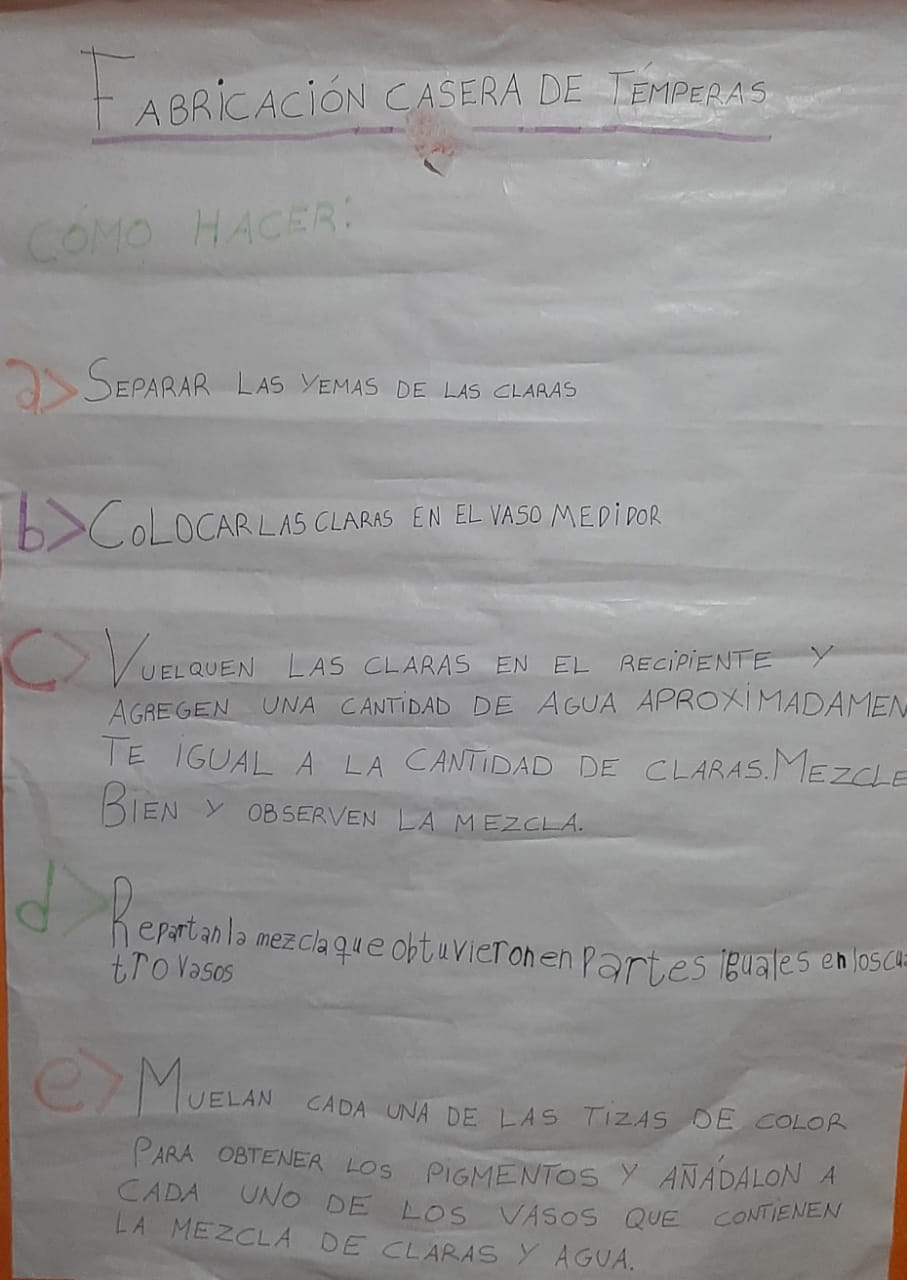 FABRICACIÓN CASERA DE TÉMPERAS
CÓMO HACER:
a> SEPARAR LAS YEMAS DE LAS CLARAS
b> COLOCAR LAS CLARAS EN EL VASO MEDIDOR
c> VUELQUEN LAS CLARAS EN EL RECIPIENTE Y
AGREGEN UNA CANTIDAD DE AGUA APROXIMADAMEN
TE IGUAL A LA CANTIDAD DE CLARAS. MEZCLE
BIEN Y OBSERVEN LA MEZCLA.
d> Repartan la mezcla que obtuvieron en Partes iguales en los cua
tro vasos
e> MUELAN CADA UNA DE LAS TIZAS DE COLOR
PARA OBTENER LOS PIGMENTOS Y AÑÁDALON A
CADA UNO DE LOS VASOS QUE CONTIENEN
LA MEZCLA DE CLARAS Y AGUA.